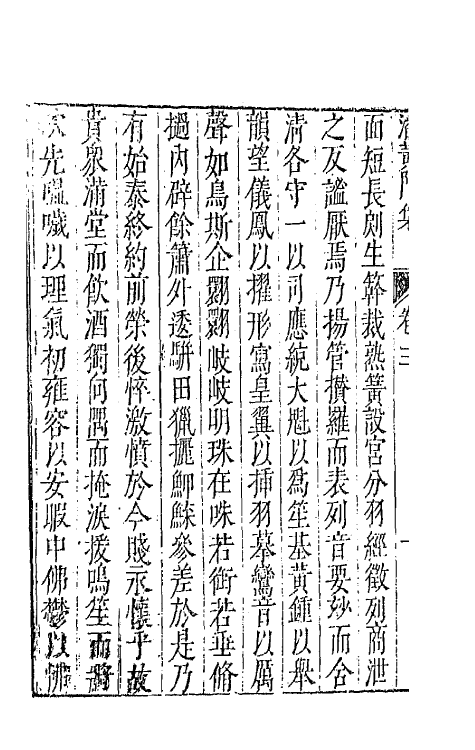 潘黃門集 卷三
面短長㓨生簳裁熟簧設宮分羽經徵列商泄
之反謐厭焉乃揚管攢羅而表列音要玅而含
清各守一以司應統大魁以爲笙基黃鍾以舉
韻望儀鳳以擢形寫皇翼以揷羽摹鸞音以厲
聲如鳥斯企翾翾岐岐明珠在咮若銜若垂脩
檛內辟餘簫外逶駢田獵攦鮙鰈參差於是乃
有始泰終約前榮後悴激憤於今賤永懷乎故
貴衆滿堂而飲酒獨向隅而掩淚援鳴笙而將
吹先嗢噦以理氣初雍容以安暇中佛鬱以怫